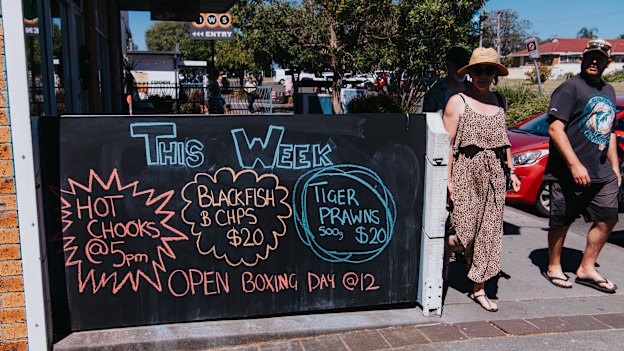 BWS
<<< ENTRY
This Week
HOT
CHOOKS
@5pm
BLACKFISH
& CHPS
$20
TIGER
PRAWNS
500g $20
OPEN BOXING DAY @12